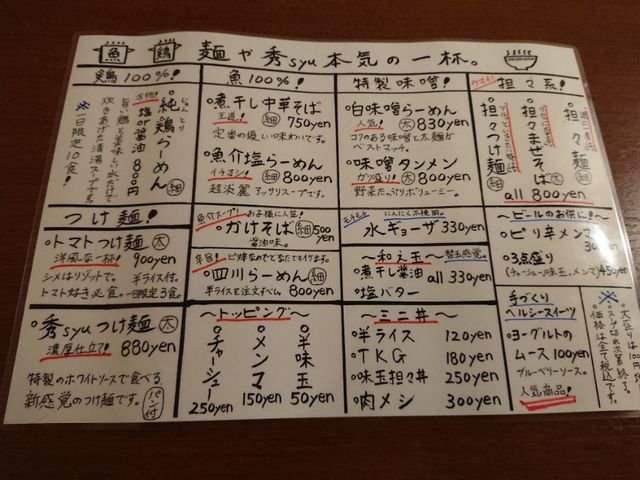 魚 鶏 麺や秀syu本気の一杯。
鶏100%!
名物!
純鶏らーめん 細
じゅんとり
塩or醤油 800円
旨い鶏と美味しい水だけで
炊きあげた清湯スープです。
※一日限定10食!
魚100%!
煮干し中華そば
王道! 細 750yen
定番の優しい味わいです。
魚介塩らーめん
イチオシ! 細 800yen
超淡麗アッサリスープです。
特製味噌!
白味噌らーめん
人気! 太 830yen
コクのある味噌と太麺が
ベストマッチ。
味噌タンメン
ガツ盛り! 太 800yen
野菜たっぷりボリューミー。
担々系!
担々麺 細
担々まぜそば 太
担々つけ麺 細
all 800yen
つけ麺!
トマトつけ麺 太
洋風な一杯! 900yen
シメはリゾットで。 半ライス付。
トマト好き必食。一日限定3食。
秀syuつけ麺 太
濃厚仕立て! 880yen
特製のホワイトソースで食べる
新感覚のつけ麺です。 パン付
魚介スープ! お子様に人気!
かけそば 細 500yen
醤油味。
辛旨!
四川らーめん 細
半ライスを注文すべし。 800yen
〜トッピング〜
チャーシュー 250yen
メンマ 150yen
半味玉 50yen
モチモチ にんにく不使用。
水ギョーザ 330yen
〜和え玉〜 替玉感覚。
煮干し醤油
all 330yen
塩バター
〜ミニ丼〜
半ライス 120yen
TKG 180yen
味玉担々丼 250yen
肉メシ 300yen
〜ビールのお供に!〜
ピリ辛メンマ
3点盛り
(チャーシュー・味玉・メンマ) 450yen
手づくり
ヘルシースイーツ
ヨーグルトの
ムース 100yen
ブルーベリーソース。
人気商品!
※
スープ切れ次第終了。
価格は全て税込です。